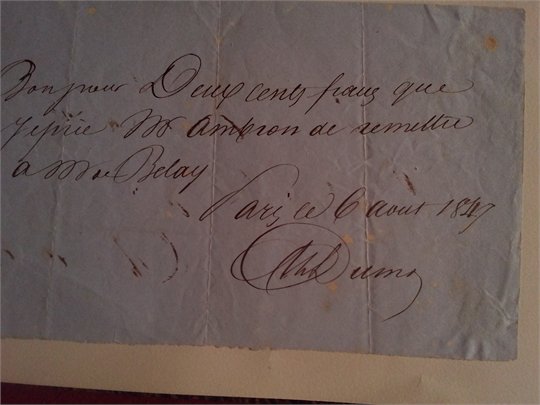 Bon pour Deux cents francs que
je prie Mr Ambron de remettre
a Mde Belay
Paris ce 6 aout 1847
Dumas